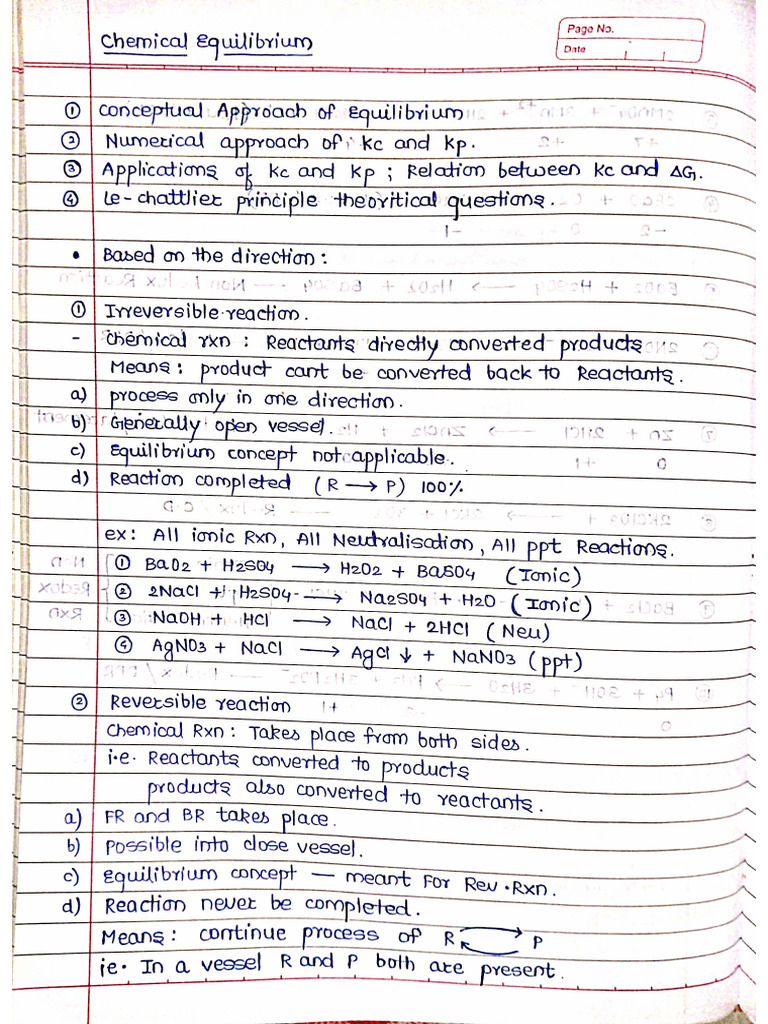 Chemical Equilibrium
Page No.
Date
① Conceptual Approach of Equilibrium
② Numerical approach of Kc and Kp.
③ Applications of Kc and Kp ; Relation between Kc and ΔG.
④ Le-chattlier principle theoritical questions.
• Based on the direction:
① Irreversible reaction.
- Chemical rxn : Reactants directly converted products
Means : product cant be converted back to Reactants.
a) process only in one direction.
b) Generally open vessel.
c) Equilibrium concept not applicable.
d) Reaction completed (R ⟶ P) 100%
ex: All ionic Rxn, All Neutralisation, All ppt Reactions.
① BaO2 + H2SO4 ⟶ H2O2 + BaSO4 (Ionic)
② 2NaCl + H2SO4 ⟶ Na2SO4 + H2O (Ionic)
③ NaOH + HCl ⟶ NaCl + 2HCl (Neu)
④ AgNO3 + NaCl ⟶ AgCl ↓ + NaNO3 (ppt)
② Reversible reaction
Chemical Rxn : Takes place from both sides.
i.e. Reactants converted to products
products also converted to reactants.
a) FR and BR takes place.
b) Possible into close vessel.
c) Equilibrium concept — meant For Rev. Rxn.
d) Reaction never be completed.
Means : continue process of R ⇌ P
ie. In a vessel R and P both are present.